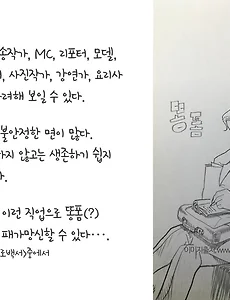 송작가, MC, 리포터, 모델,
, 사진작가, 강연가, 요리사
려해 보일 수 있다.
불안정한 면이 많다.
하지 않고는 생존하기 쉽지
이런 직업으로 똥폼(?)
패가망신할 수 있다….
로백서>중에서
똥폼